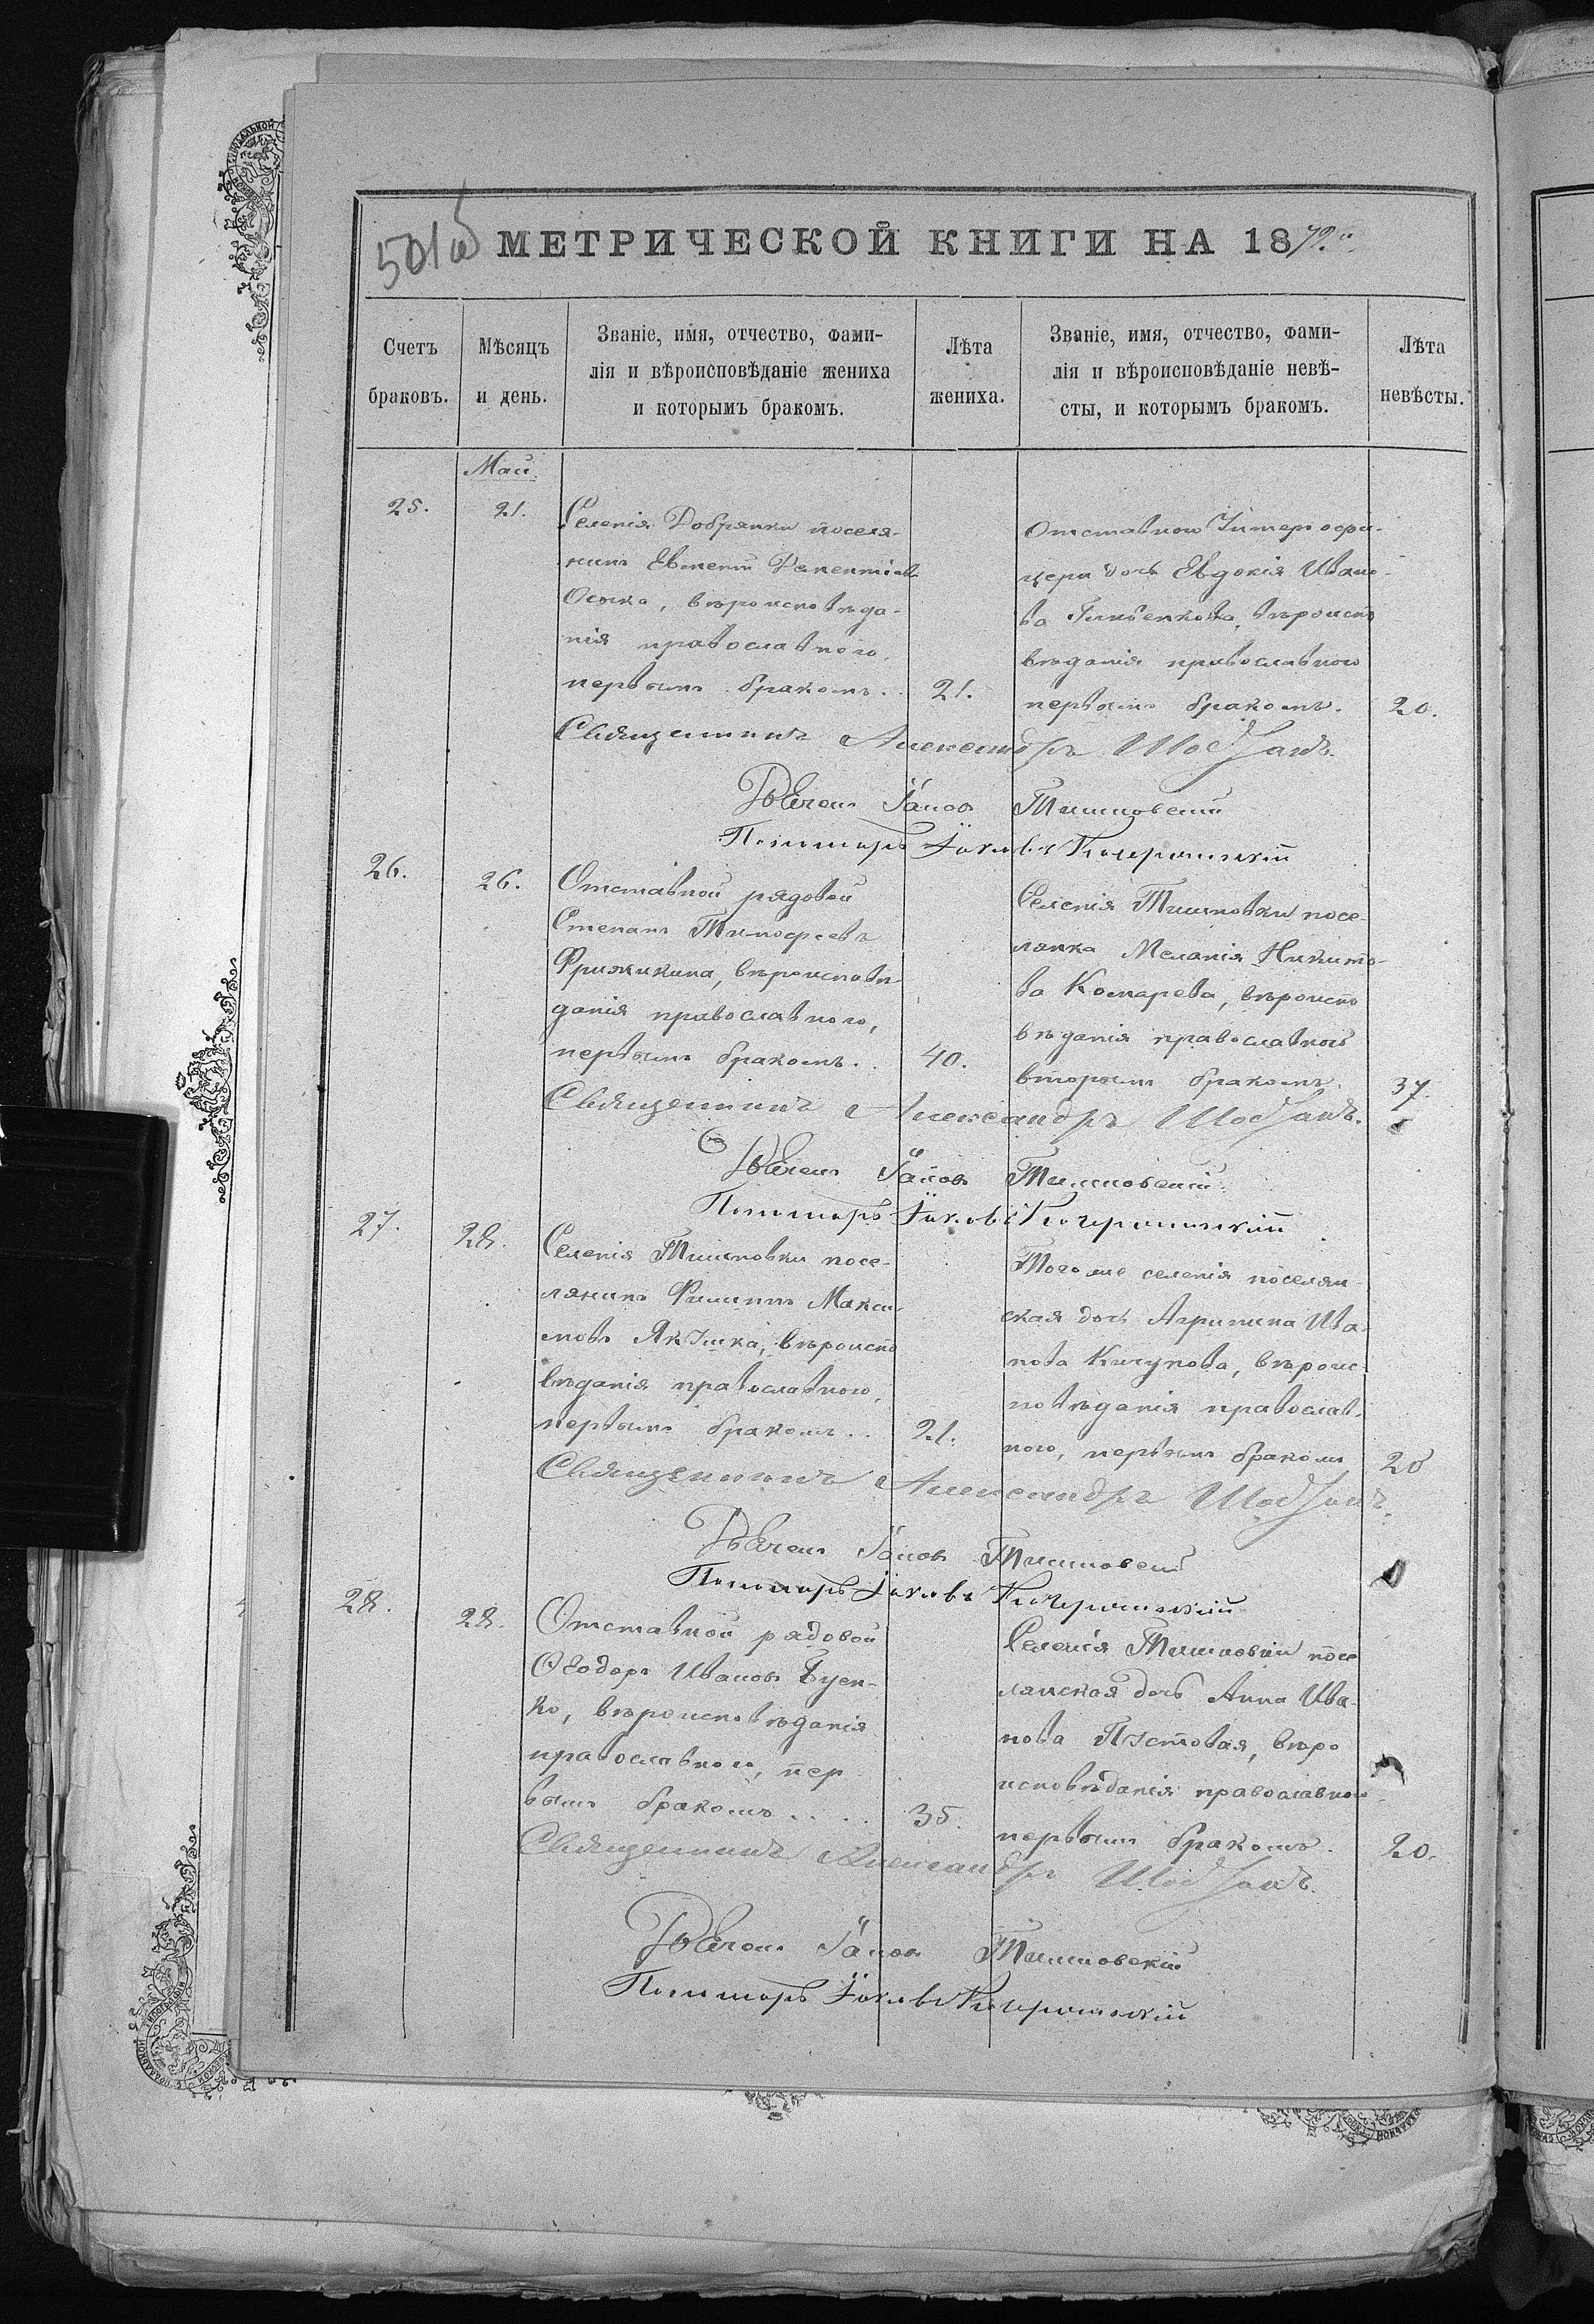 501 об
МЕТРИЧЕСКОЙ КНИГИ НА 1872.
Счетъ браковъ.
Мѣсяцъ и день.
Званіе, имя, отчество, фами-
лія и вѣроисповѣданіе жениха
и которымъ бракомъ.
Лѣта жениха.
Званіе, имя, отчество, фами-
лія и вѣроисповѣданіе невѣ-
сты, и которымъ бракомъ.
Лѣта невѣсты.
Май.
25.
21.
Селенія Добрянки поселя-
нинъ Евменій
Осыка, вѣроисповѣда-
нія православнаго,
первымъ бракомъ.
21.
Отставнаго Унтеръ офи-
цера дочь Евдокія Ивано-
ва вѣроиспо
вѣданія православнаго
первымъ бракомъ.
20.
Священникъ Александръ
Дьячекъ Іаковъ Тишковскій
Пономарь Іаковъ
26.
26.
Отставной рядовой
Степанъ Тимофеевъ
вѣроисповѣ
данія православнаго,
первымъ бракомъ.
40.
Селенія Тишковки посе-
лянка Меланія Никито-
ва Комарева, вѣроиспо
вѣданія православнаго
вторымъ бракомъ.
37.
Священникъ Александръ
Дьячекъ Іаковъ Тишковскій
Пономарь Іаковъ
27.
28.
Селенія Тишковки посе-
лянинъ Филиппъ Макси-
мовъ вѣроиспо
вѣданія православнаго,
первымъ бракомъ..
21.
Того же селенія поселян-
ская дочь Агрипина Ива-
нова вѣроис-
повѣданія православ-
наго, первымъ бракомъ
20
Священникъ Александръ
Дьячекъ Іаковъ Тишковскій
Пономарь Іаковъ
28.
28.
Отставной рядовой
Ѳеодоръ Ивановъ Буен-
ко, вѣроисповѣданія
православнаго, пер
вымъ бракомъ....
35.
Селенія Тишковки посе
лянская дочь Анна Ива-
нова Пустовая, вѣро
исповѣданія православнаго
первымъ бракомъ.
20.
Священникъ Александръ
Дьячекъ Іаковъ Тишковскій
Пономарь Іаковъ